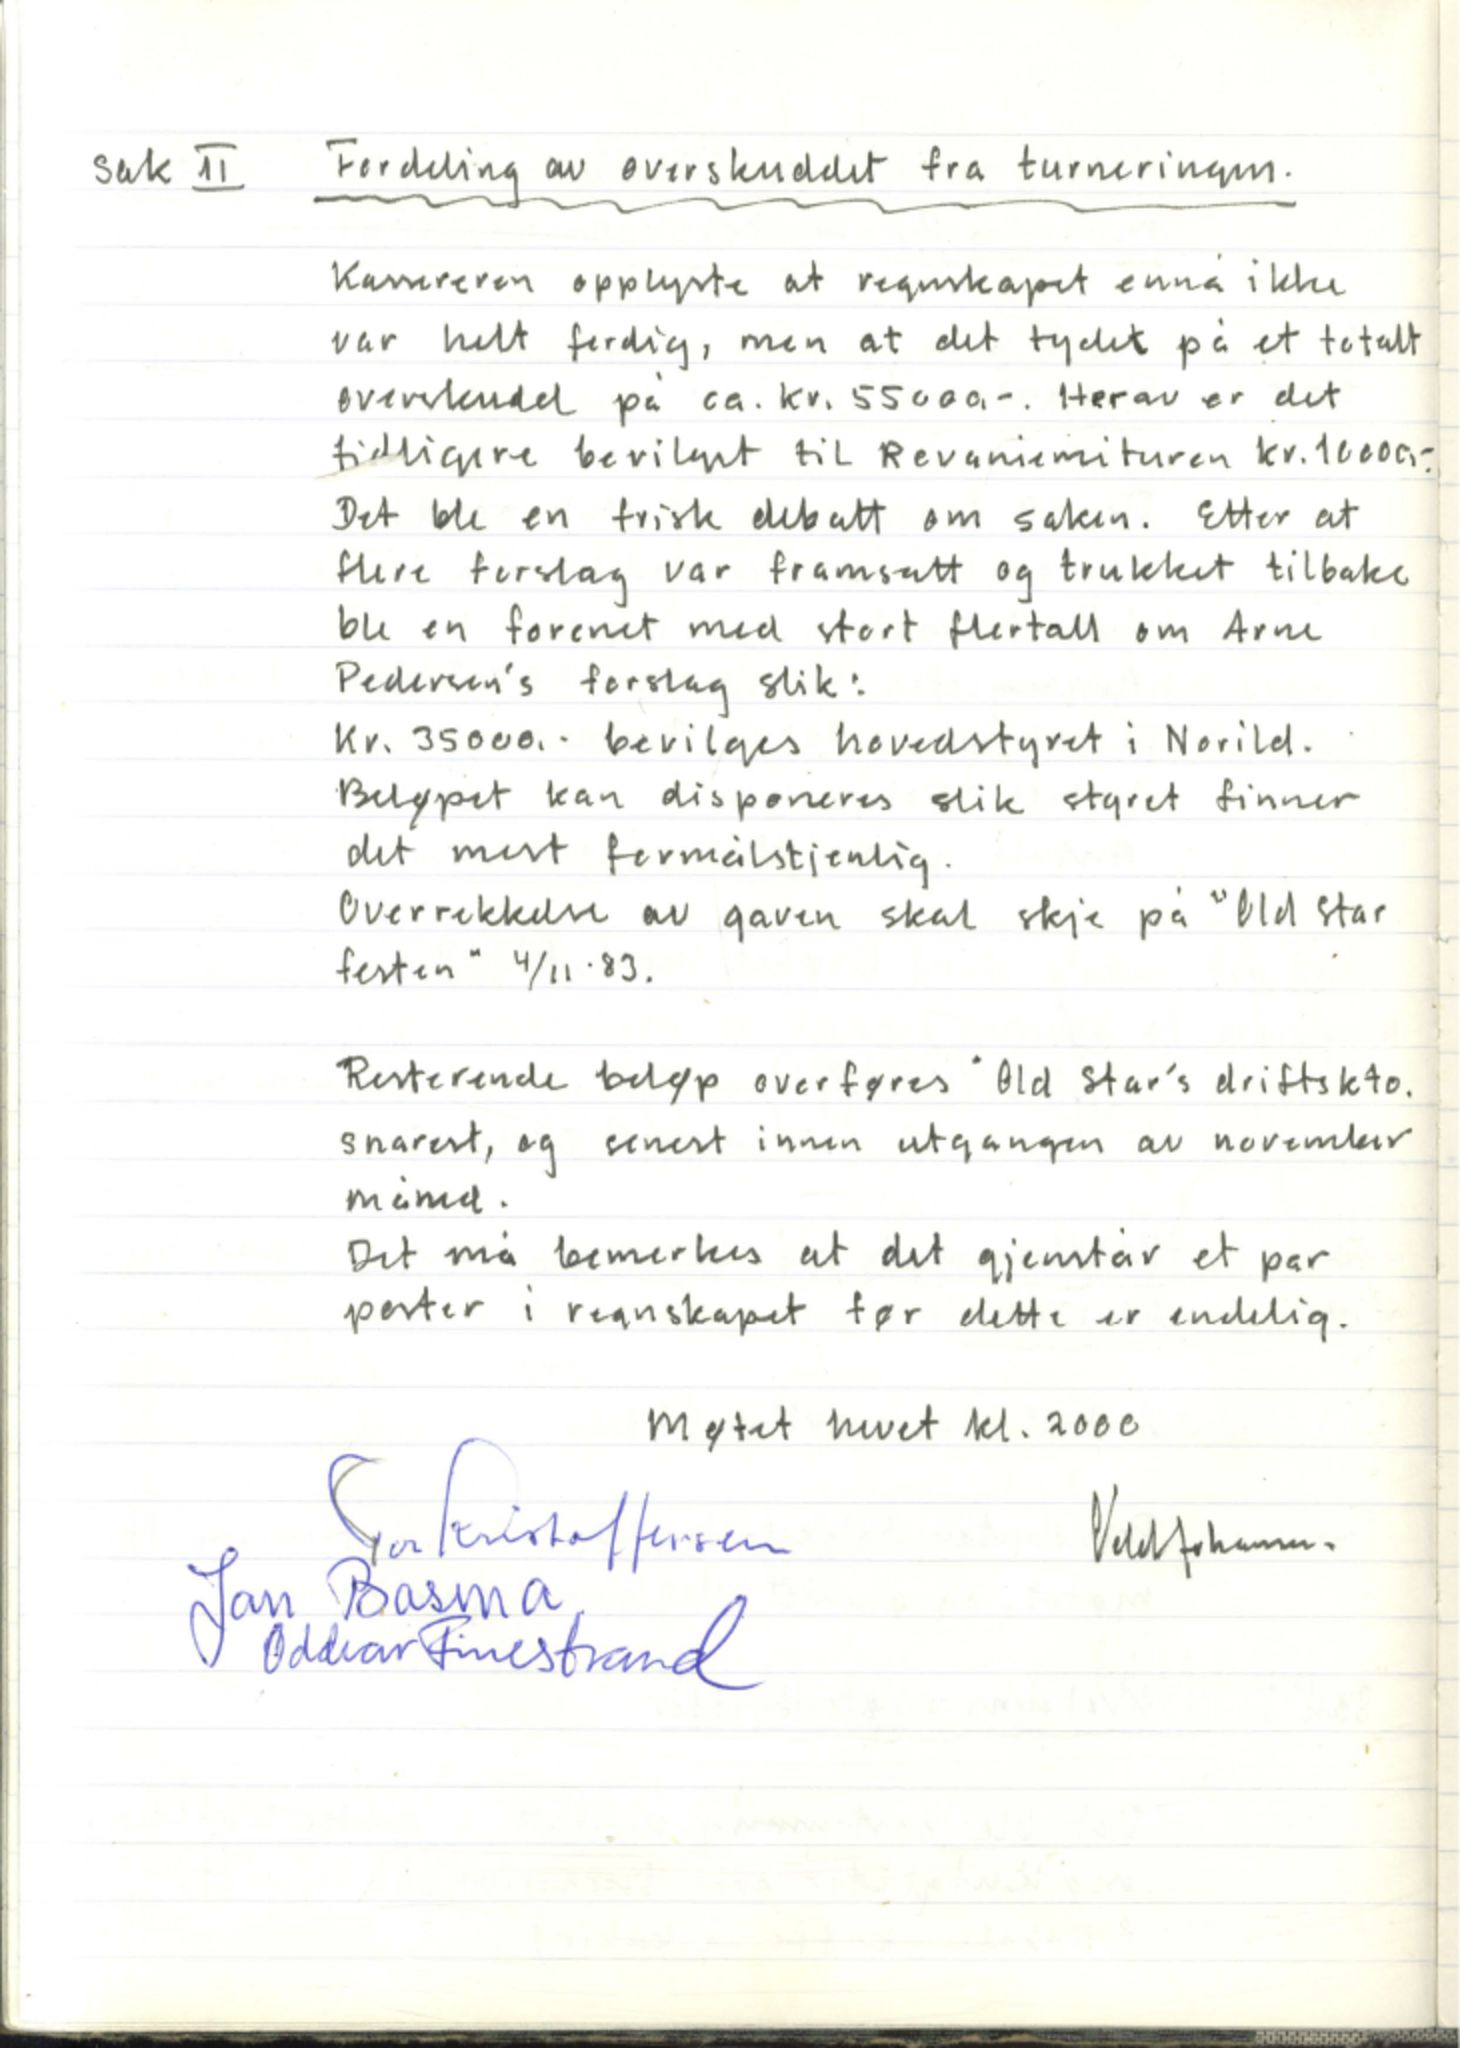 Sak II Fordeling av overskuddet fra turneringen.
Kassereren opplyste at regnskapet ennå ikke
var helt ferdig, men at det tydet på et totalt
overskudd på ca. kr. 55000.-. Herav er det
tidligere bevilget til Rovaniemituren kr. 10000.-
Det ble en frisk debatt om saken. Etter at
flere forslag var framsatt og trukket tilbake
ble en forenet med stort flertall om Arne
Pedersen's forslag slik:
Kr. 35000.- bevilges hovedstyret i Norild.
Beløpet kan disponeres slik styret finner
det mest formålstjenlig.
Overrekkelse av gaven skal skje på "Old Star
festen" 4/11-83.
Resterende beløp overføres "Old Star's driftskto.
snarest, og senest innen utgangen av november
måned.
Det må bemerkes at det gjenstår et par
poster i regnskapet før dette er endelig.
Møtet hevet kl. 2000
Kristoffersen
Johansen
Jan Basma
Oddvar Finestrand